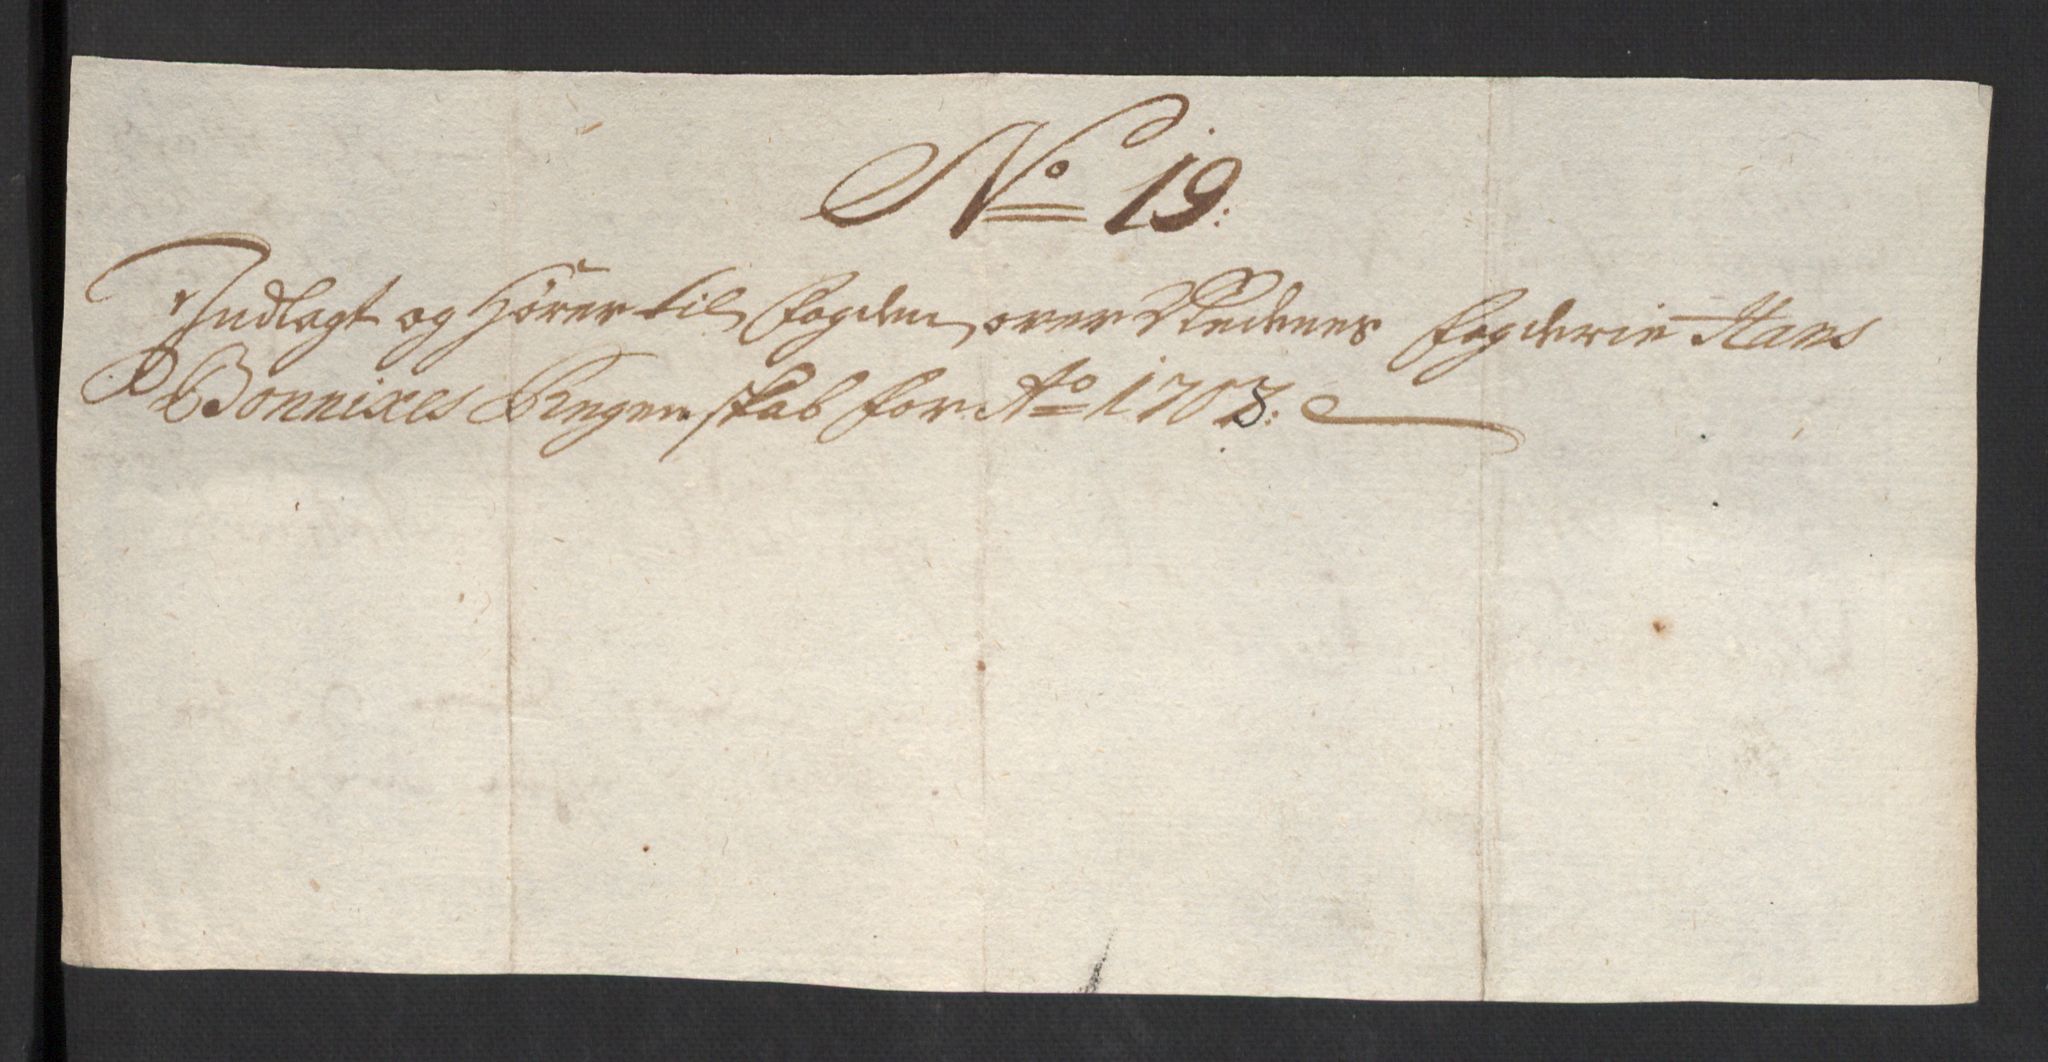 No 19:
Indlagt og hører til fogden over Nedenes fogderie Hans
Bonnixes Regenskab for Ao 1703: